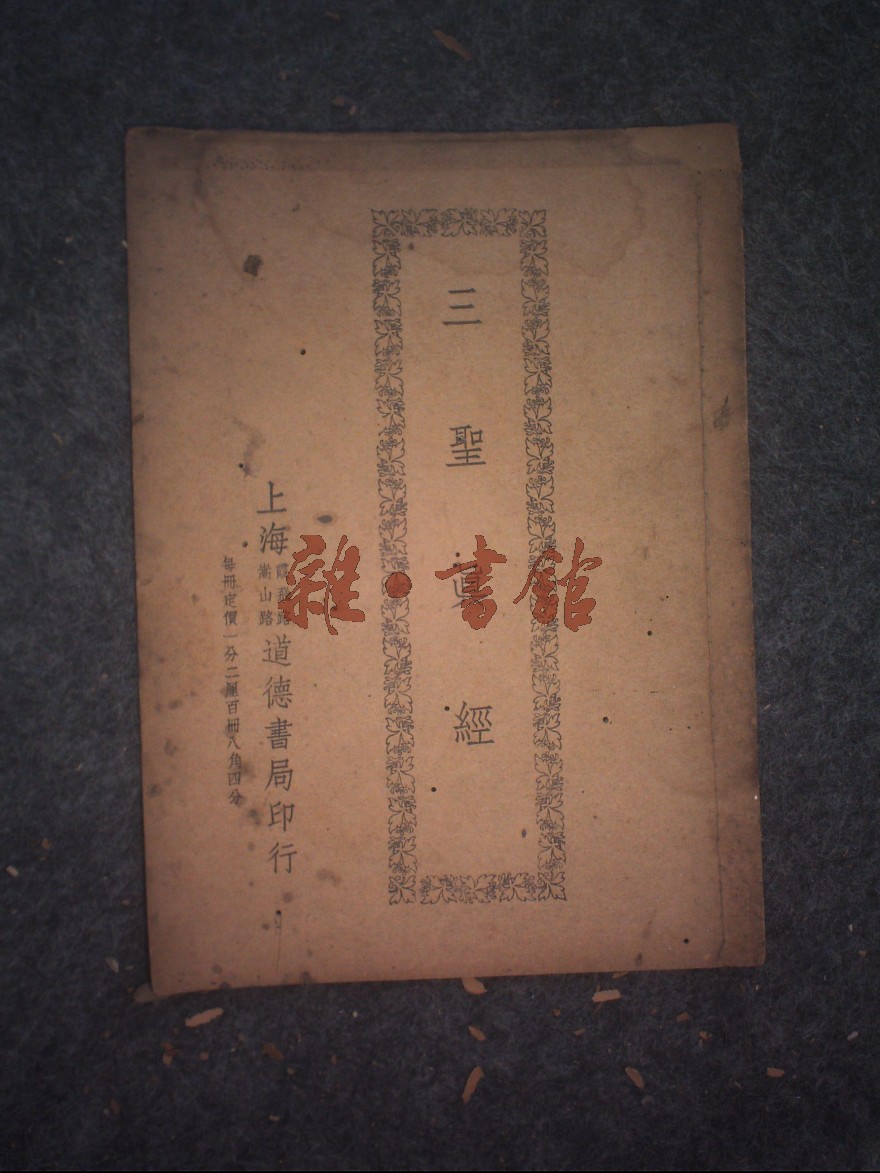 三聖眞經
上海霞飛路嵩山路道德書局印行
每冊定價一分二厘百冊八角四分
雜·書館